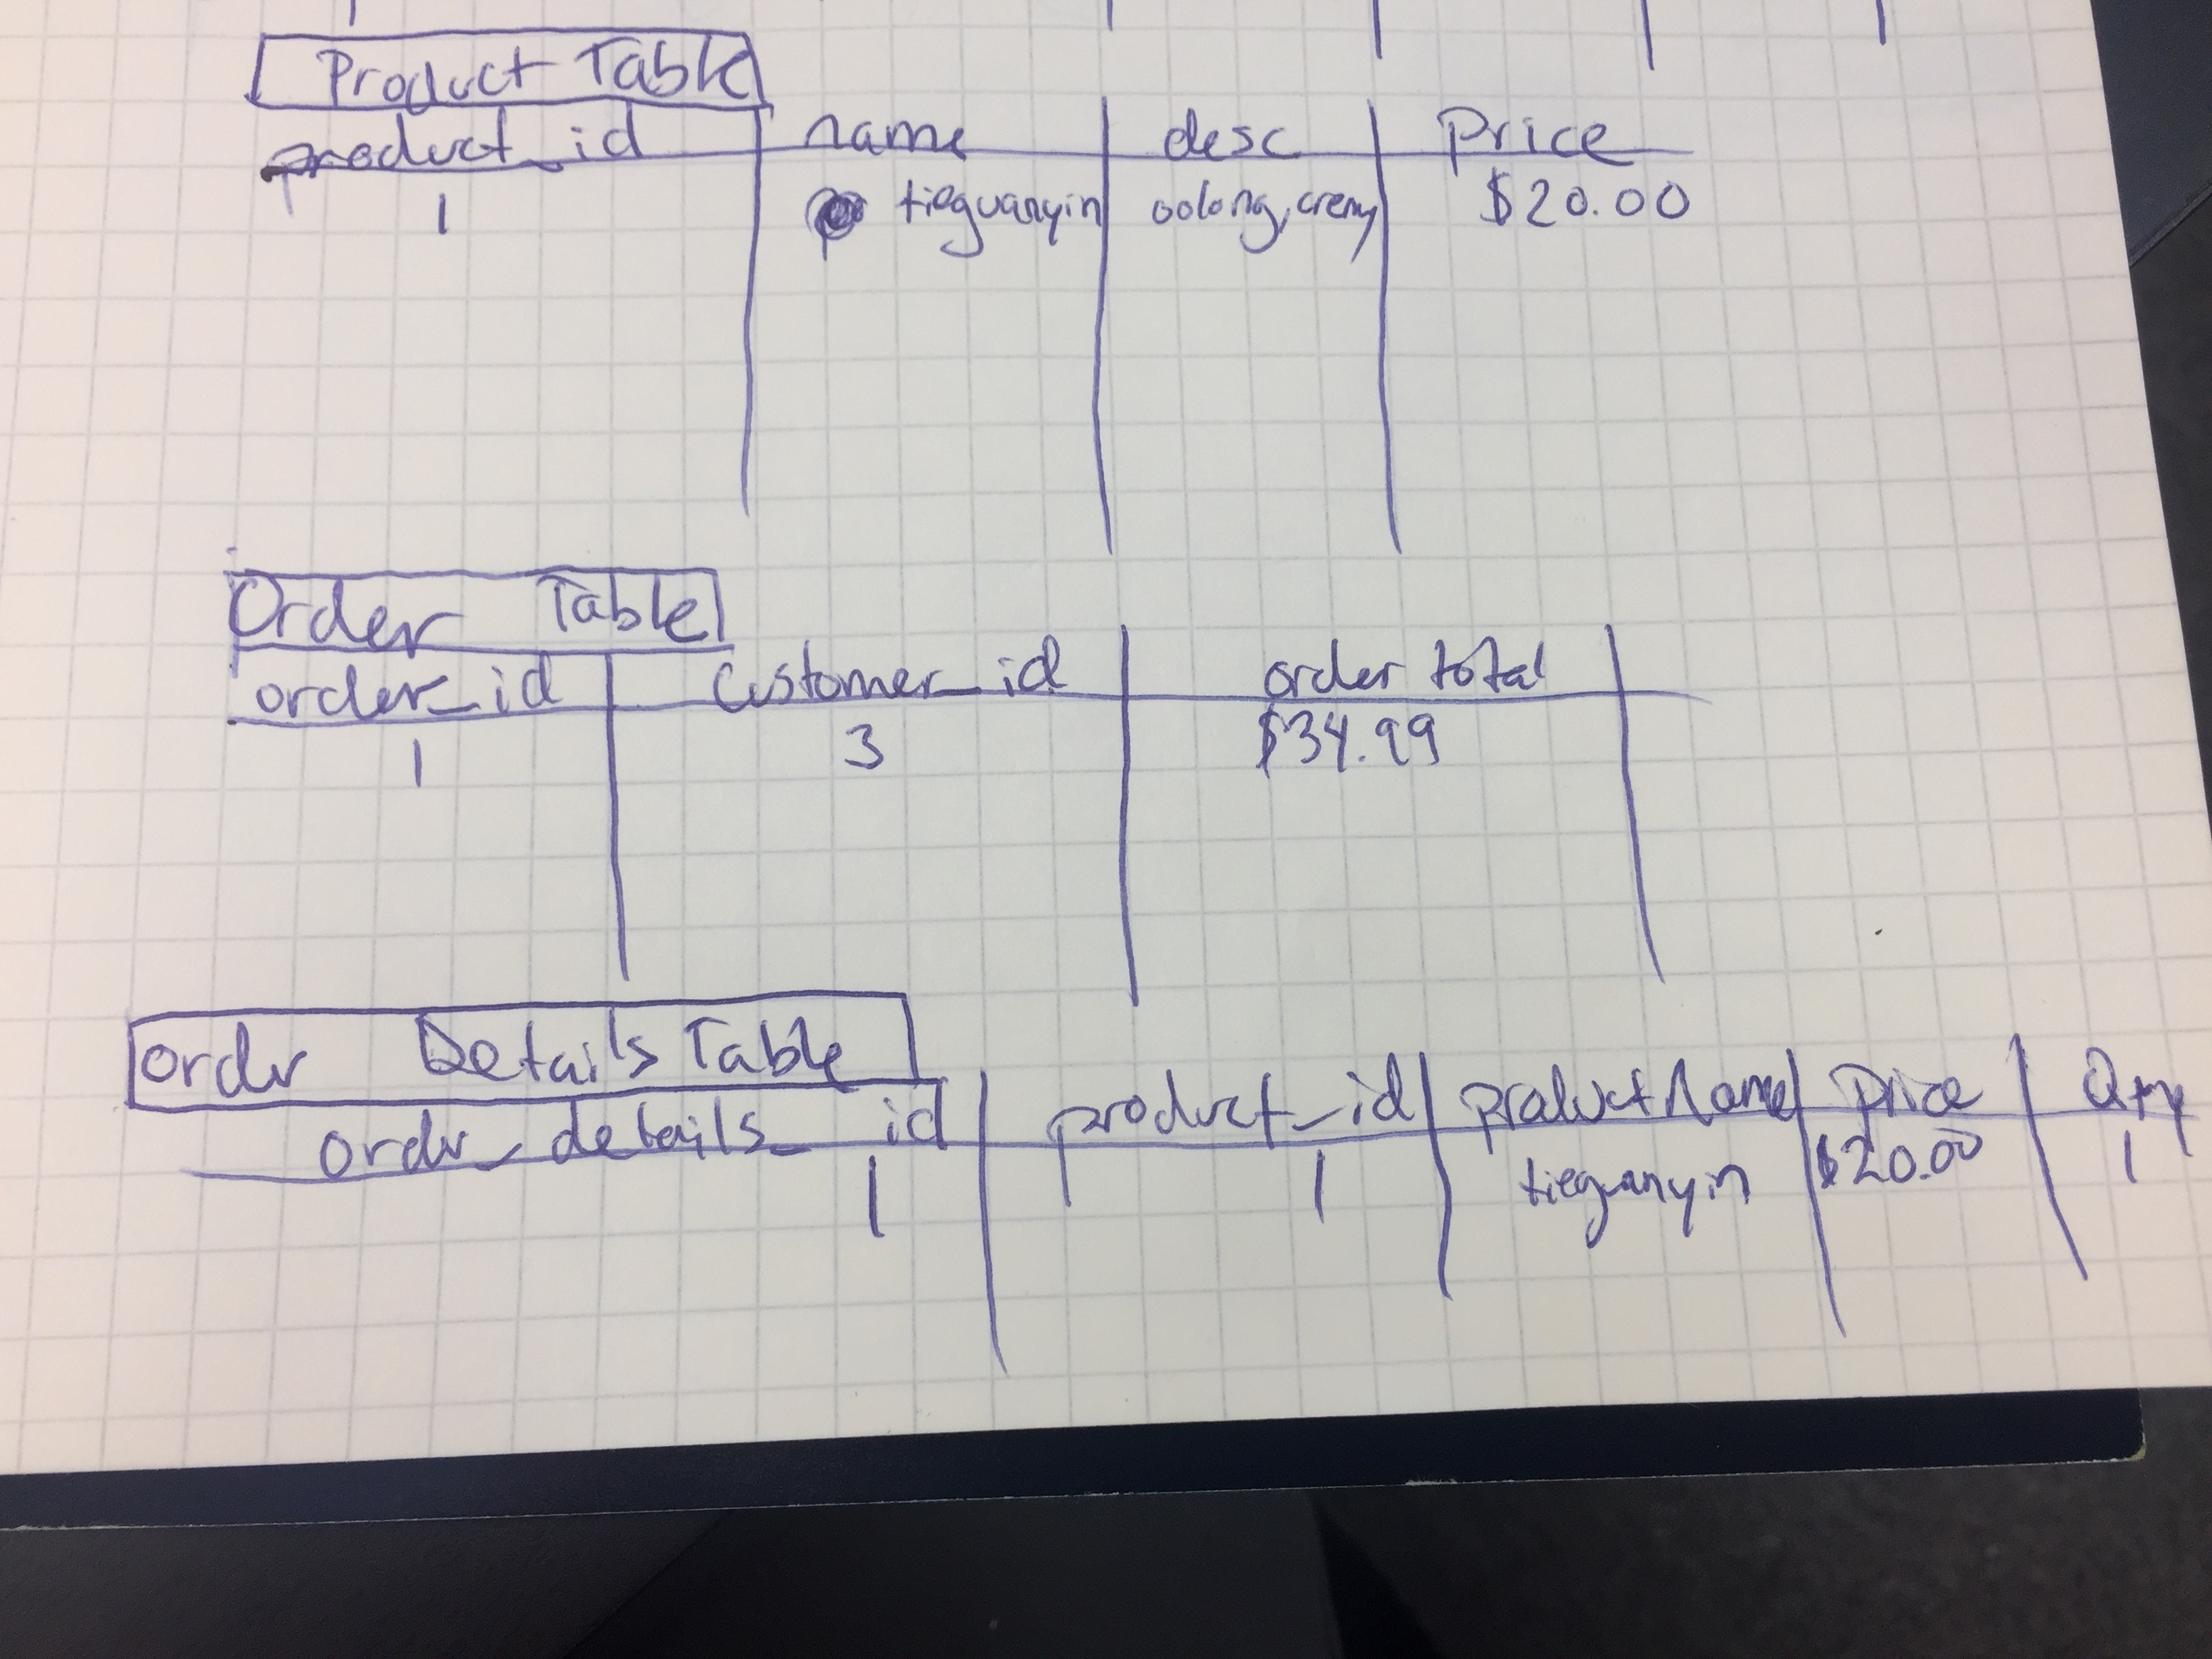 Product Table
product_id name desc Price
1 tieguanyin oolong, cremy $20.00
Order Table
order_id Customer_id order total
1 3 $34.99
ordr Details Table
ordr_details_id product_id productName Price Qty
1 1 tieguanyin $20.00 1